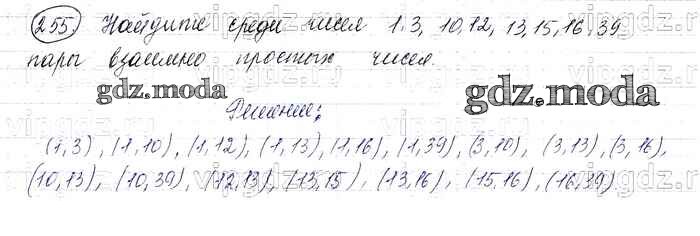 255. Найдите среди чисел 1,3, 10,12, 13,15,16,39
пары взаимно простых чисел.
gdz.moda
gdz.moda
Решение:
(1,3), (1,10), (1,12), (1,13), (1,16), (1,39), (3,10), (3,13), (3,16),
(10,13), (10,39), (12,13), (13,15), (13,16), (15,16), (16,39)